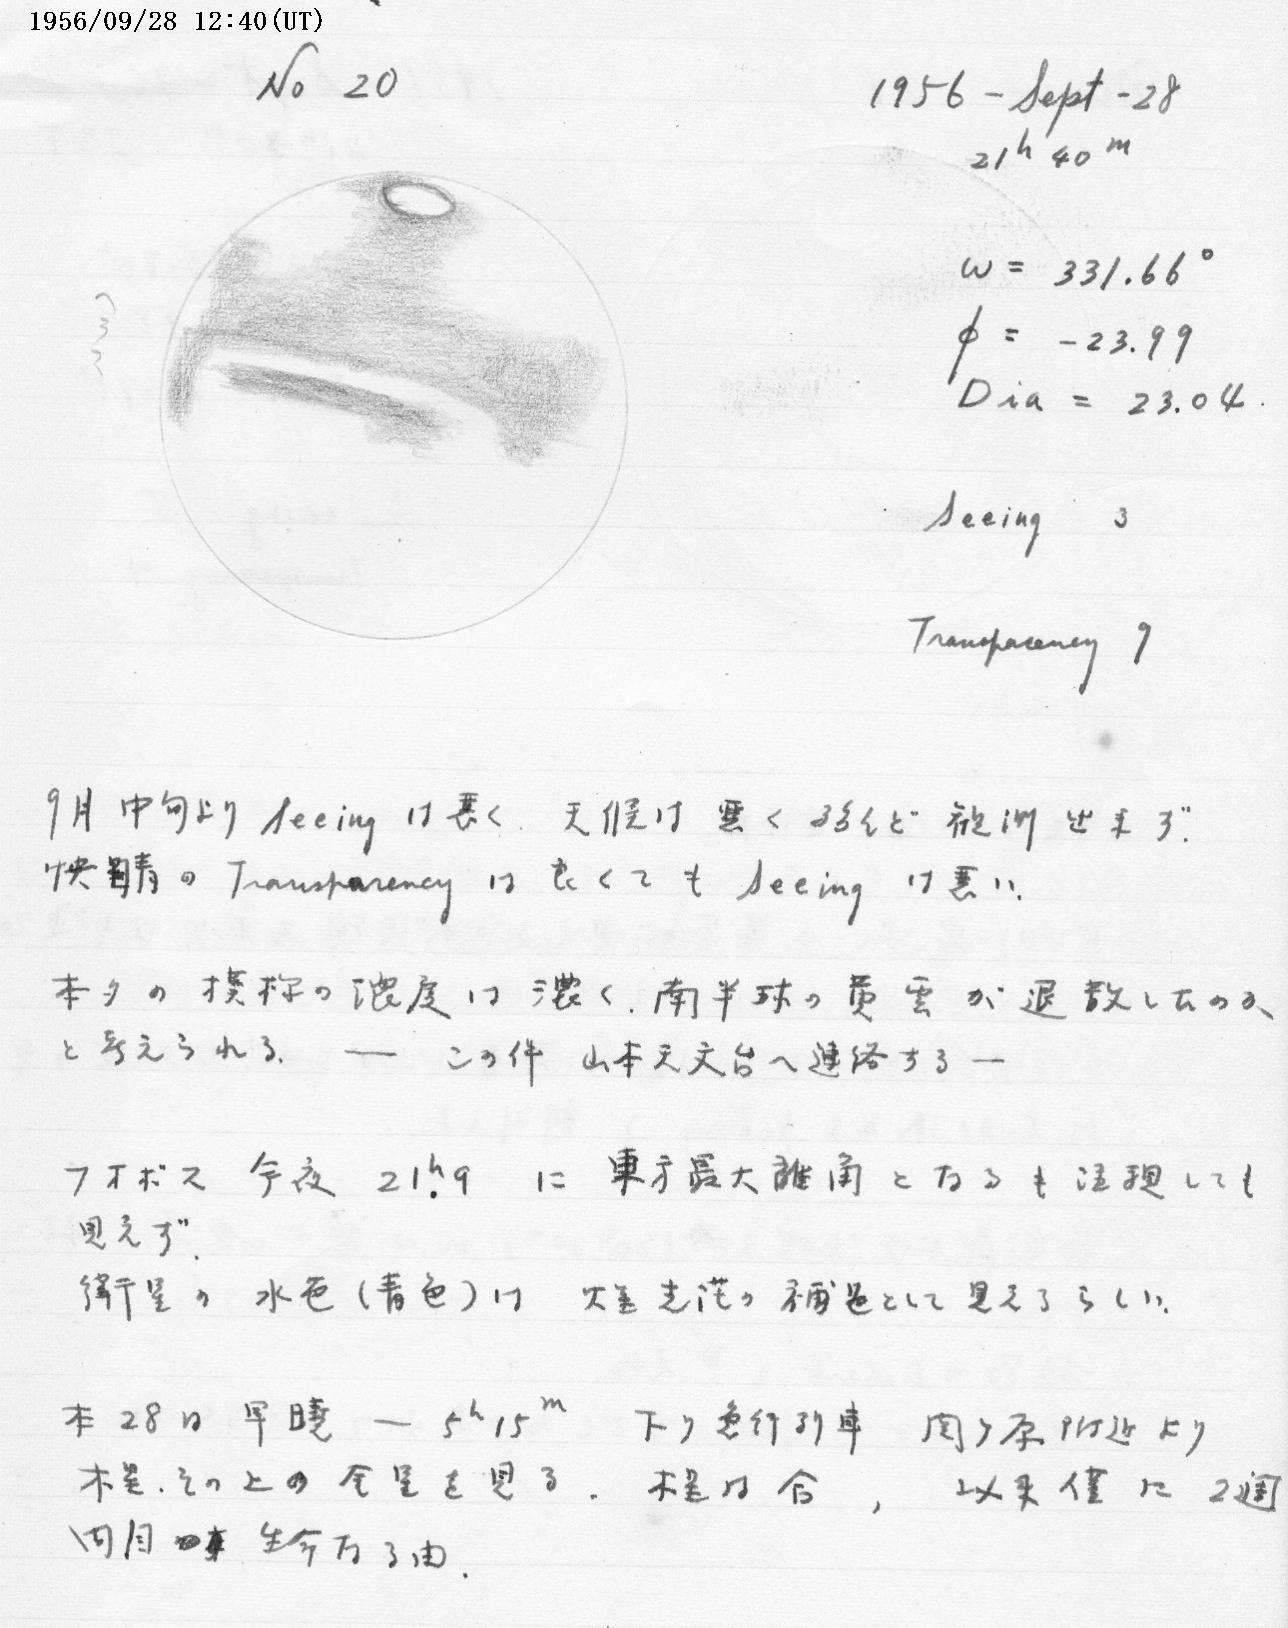 1956/09/28 12:40(UT)
No 20
1956 - Sept - 28
21h 40m
ω = 331.66°
φ = -23.99
Dia = 23.04.
Seeing 3
Transparency 9
9月中旬より Seeing は悪く. 天候は悪く 殆んど観測出来ず.
快晴の Transparency は良くても Seeing は悪い.
本夕の模様の濃度は濃く. 南半球の黄雲が退散したのか、
と考えられる. — この件 山本天文台へ連絡する —
フオボス 今夜 21h.9 に東方最大離角となるも注視しても
見えず.
衛星の 水色(青色)は 火星光茫の補色として見えるらしい.
本28日早暁 — 5h15m 下り急行列車 関ヶ原附近より
木星.その上の金星を見る. 木星は合, 以来僅に2週
間目 なる由.